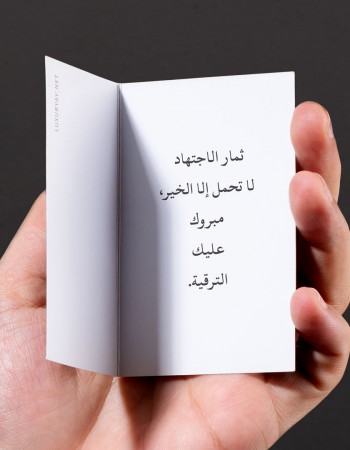 ثمار الاجتهاد
لا تحمل إلا الخير،
مبروك
عليك
الترقية.
LUXURYAY.NET